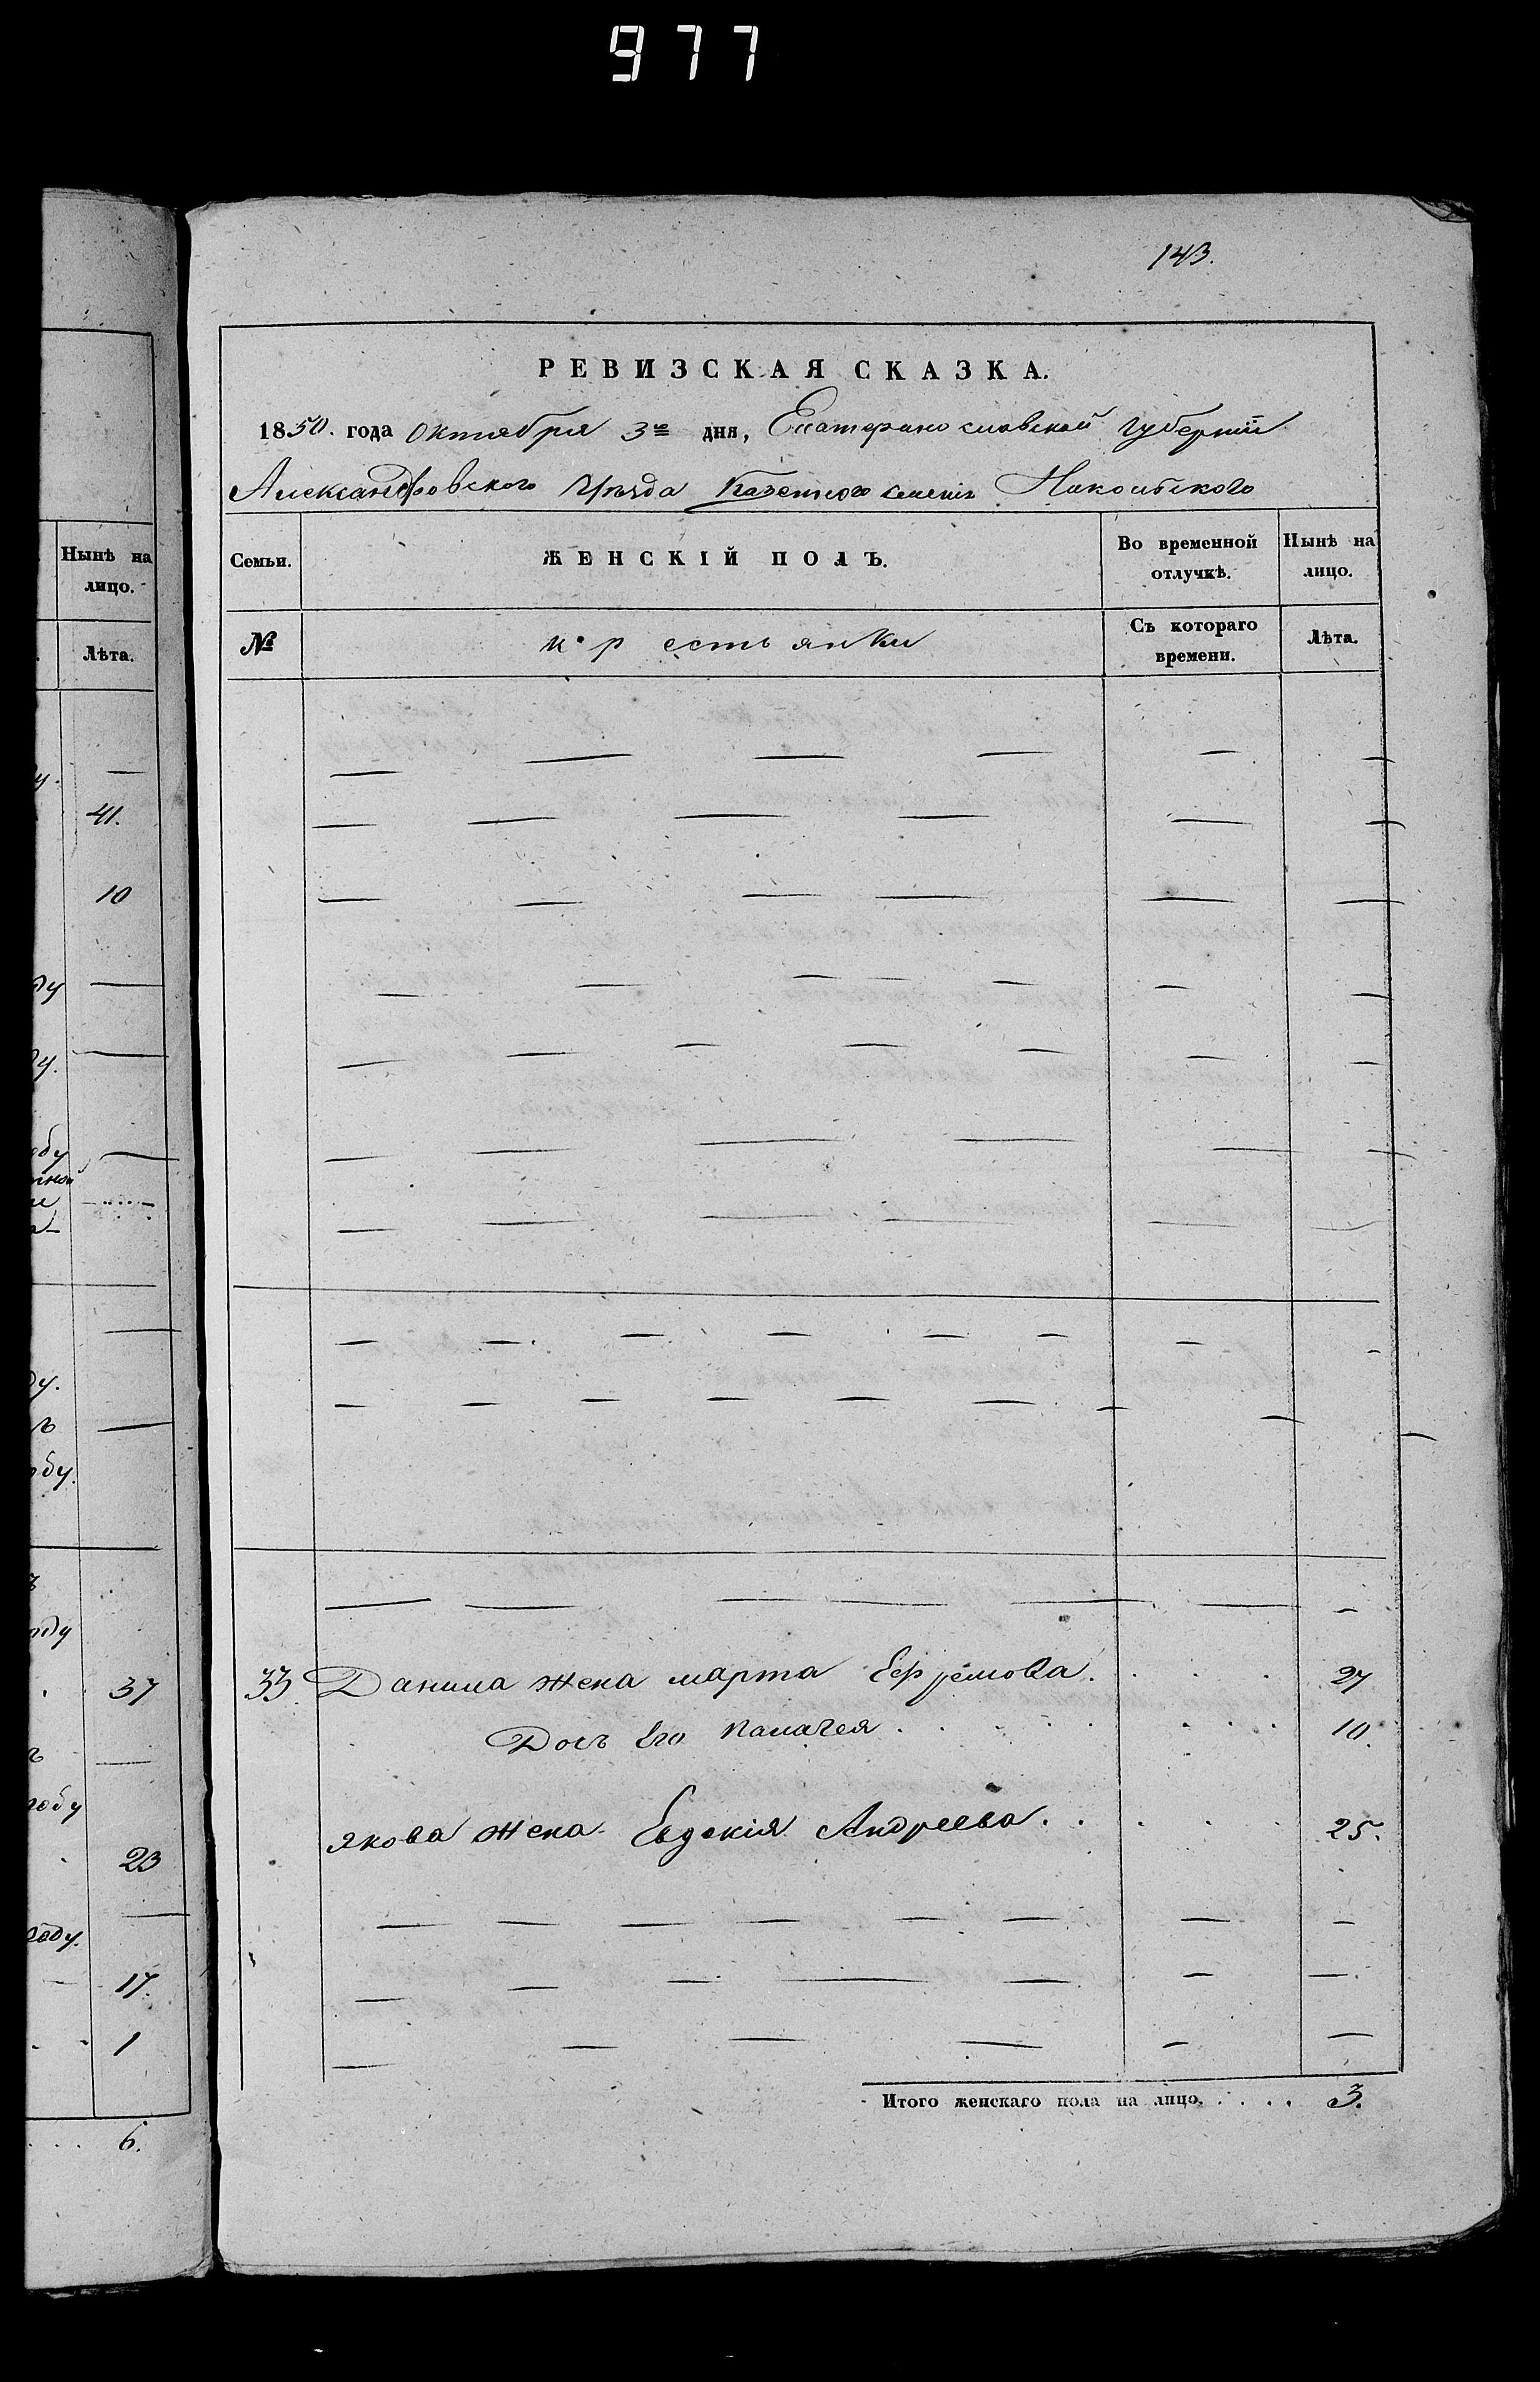 977
143.
РЕВИЗСКАЯ СКАЗКА.
1850. года Октября 3го дня, Екатеринославской Губернии
Александровского Уезда Казенного селения Никольского
Нынѣ на
лицо.
Лѣта.
Семьи.
ЖЕНСКІЙ ПОЛЪ.
Во временной
отлучкѣ.
Нынѣ на
лицо.
№
крестьянки
Съ котораго
времени.
Лѣта.
41.
10
37
23
17.
1
6.
33. Данила жена марта Ефремова. 27
Дочь Его Палагея 10.
Якова жена Евдокія Андреева. 25.
Итого женскаго пола на лицо. 3.